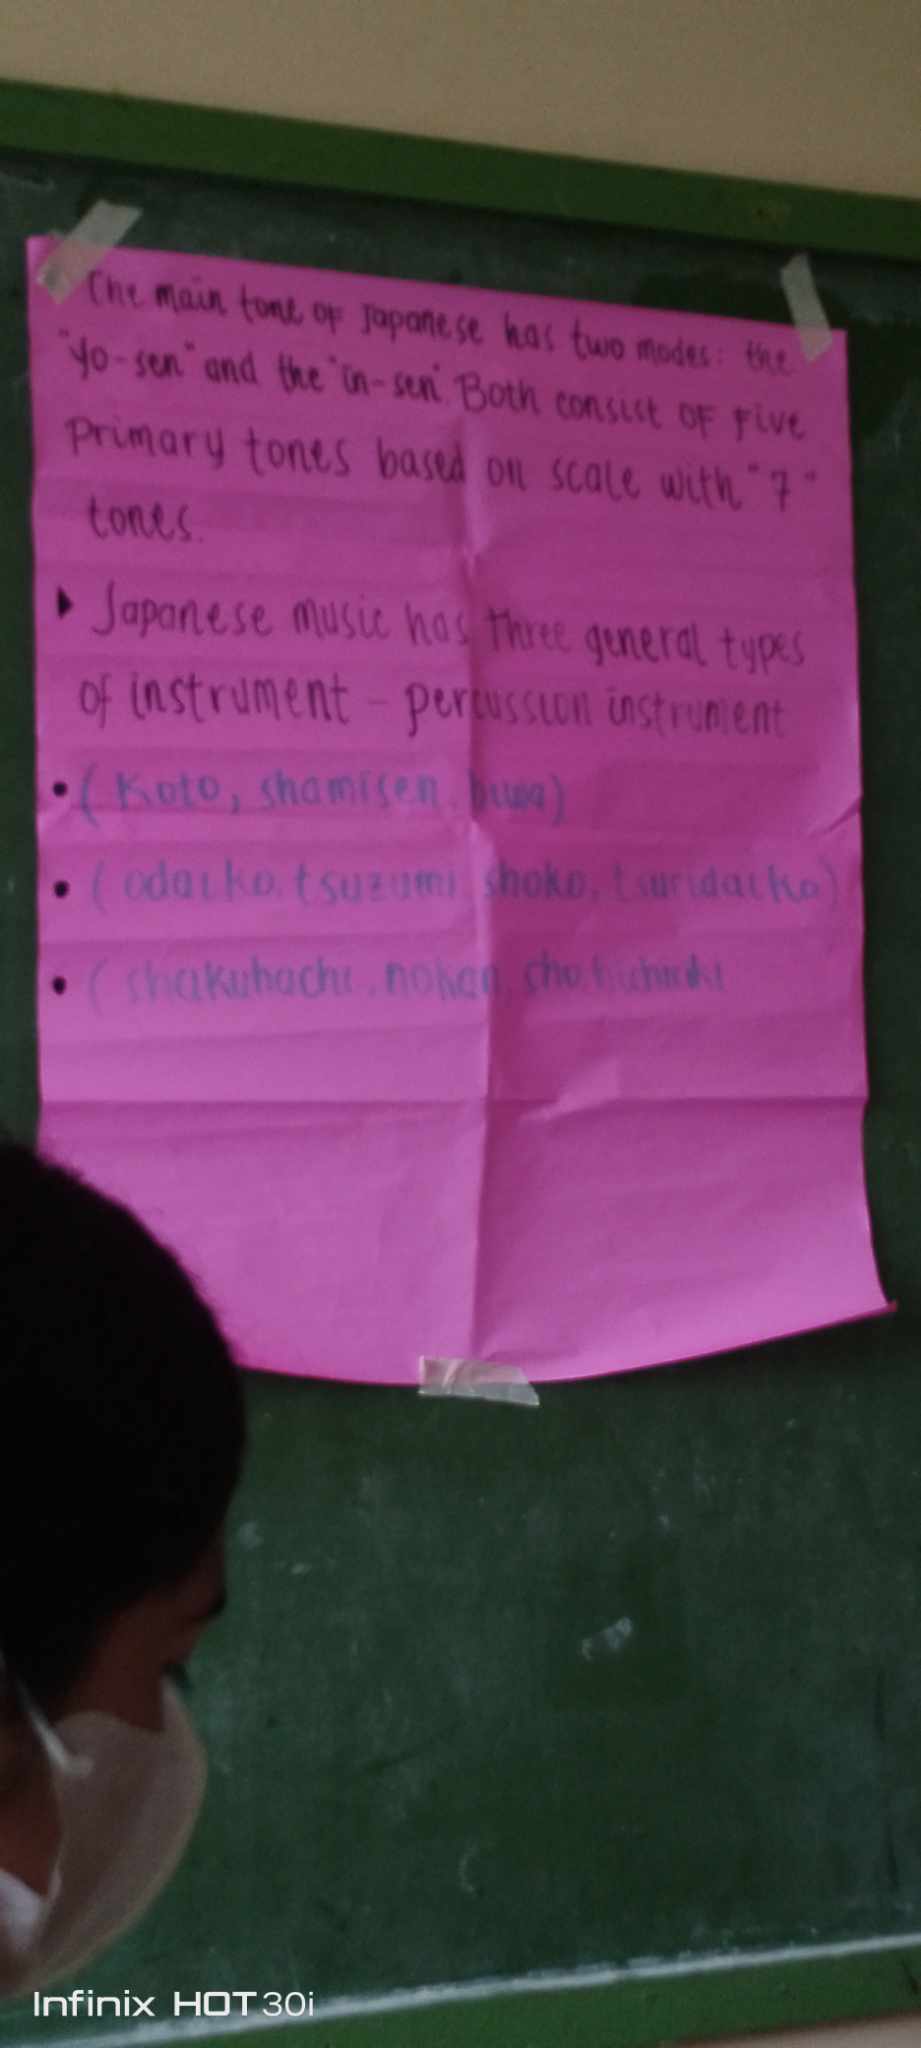 The main tone of Japanese has two modes: the
"yo-sen" and the "in-sen" Both consist of Five
Primary tones based on scale with "7"
tones.
Japanese music has Three general types
of instrument - percussion instrument
• (Koto, shamisen, biwa)
• (odaiko, tsuzumi, shoko, tsuridaiko)
• (shakuhachi, nokan, sho, hichiriki
Infinix HOT 30i